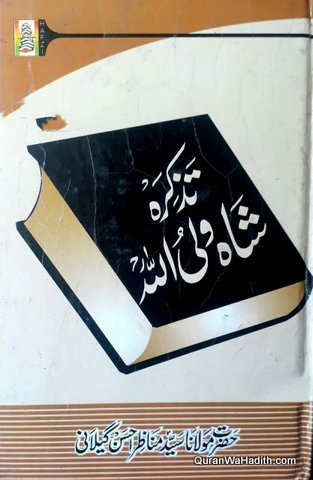 HAFZI
تذکرہ
شاہ ولی اللہؒ
حضرت مولانا سید مناظر احسن گیلانی
QuranWaHadith.com